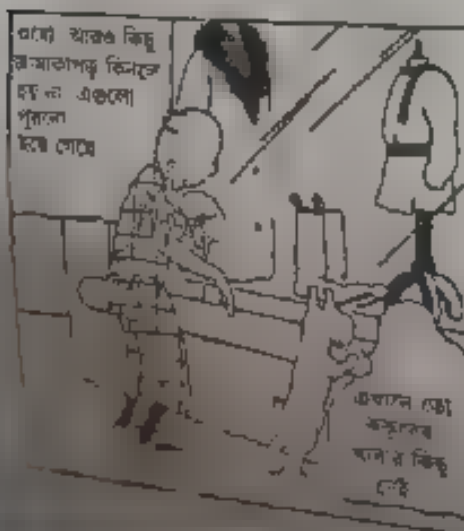 ওহো আরও কিছু
জামাকাপড় কিনতে
হবে এগুলো
পুরনো
হয়ে গেছে
এখানে তো
কুকুরের
খাবার কিছু
নেই